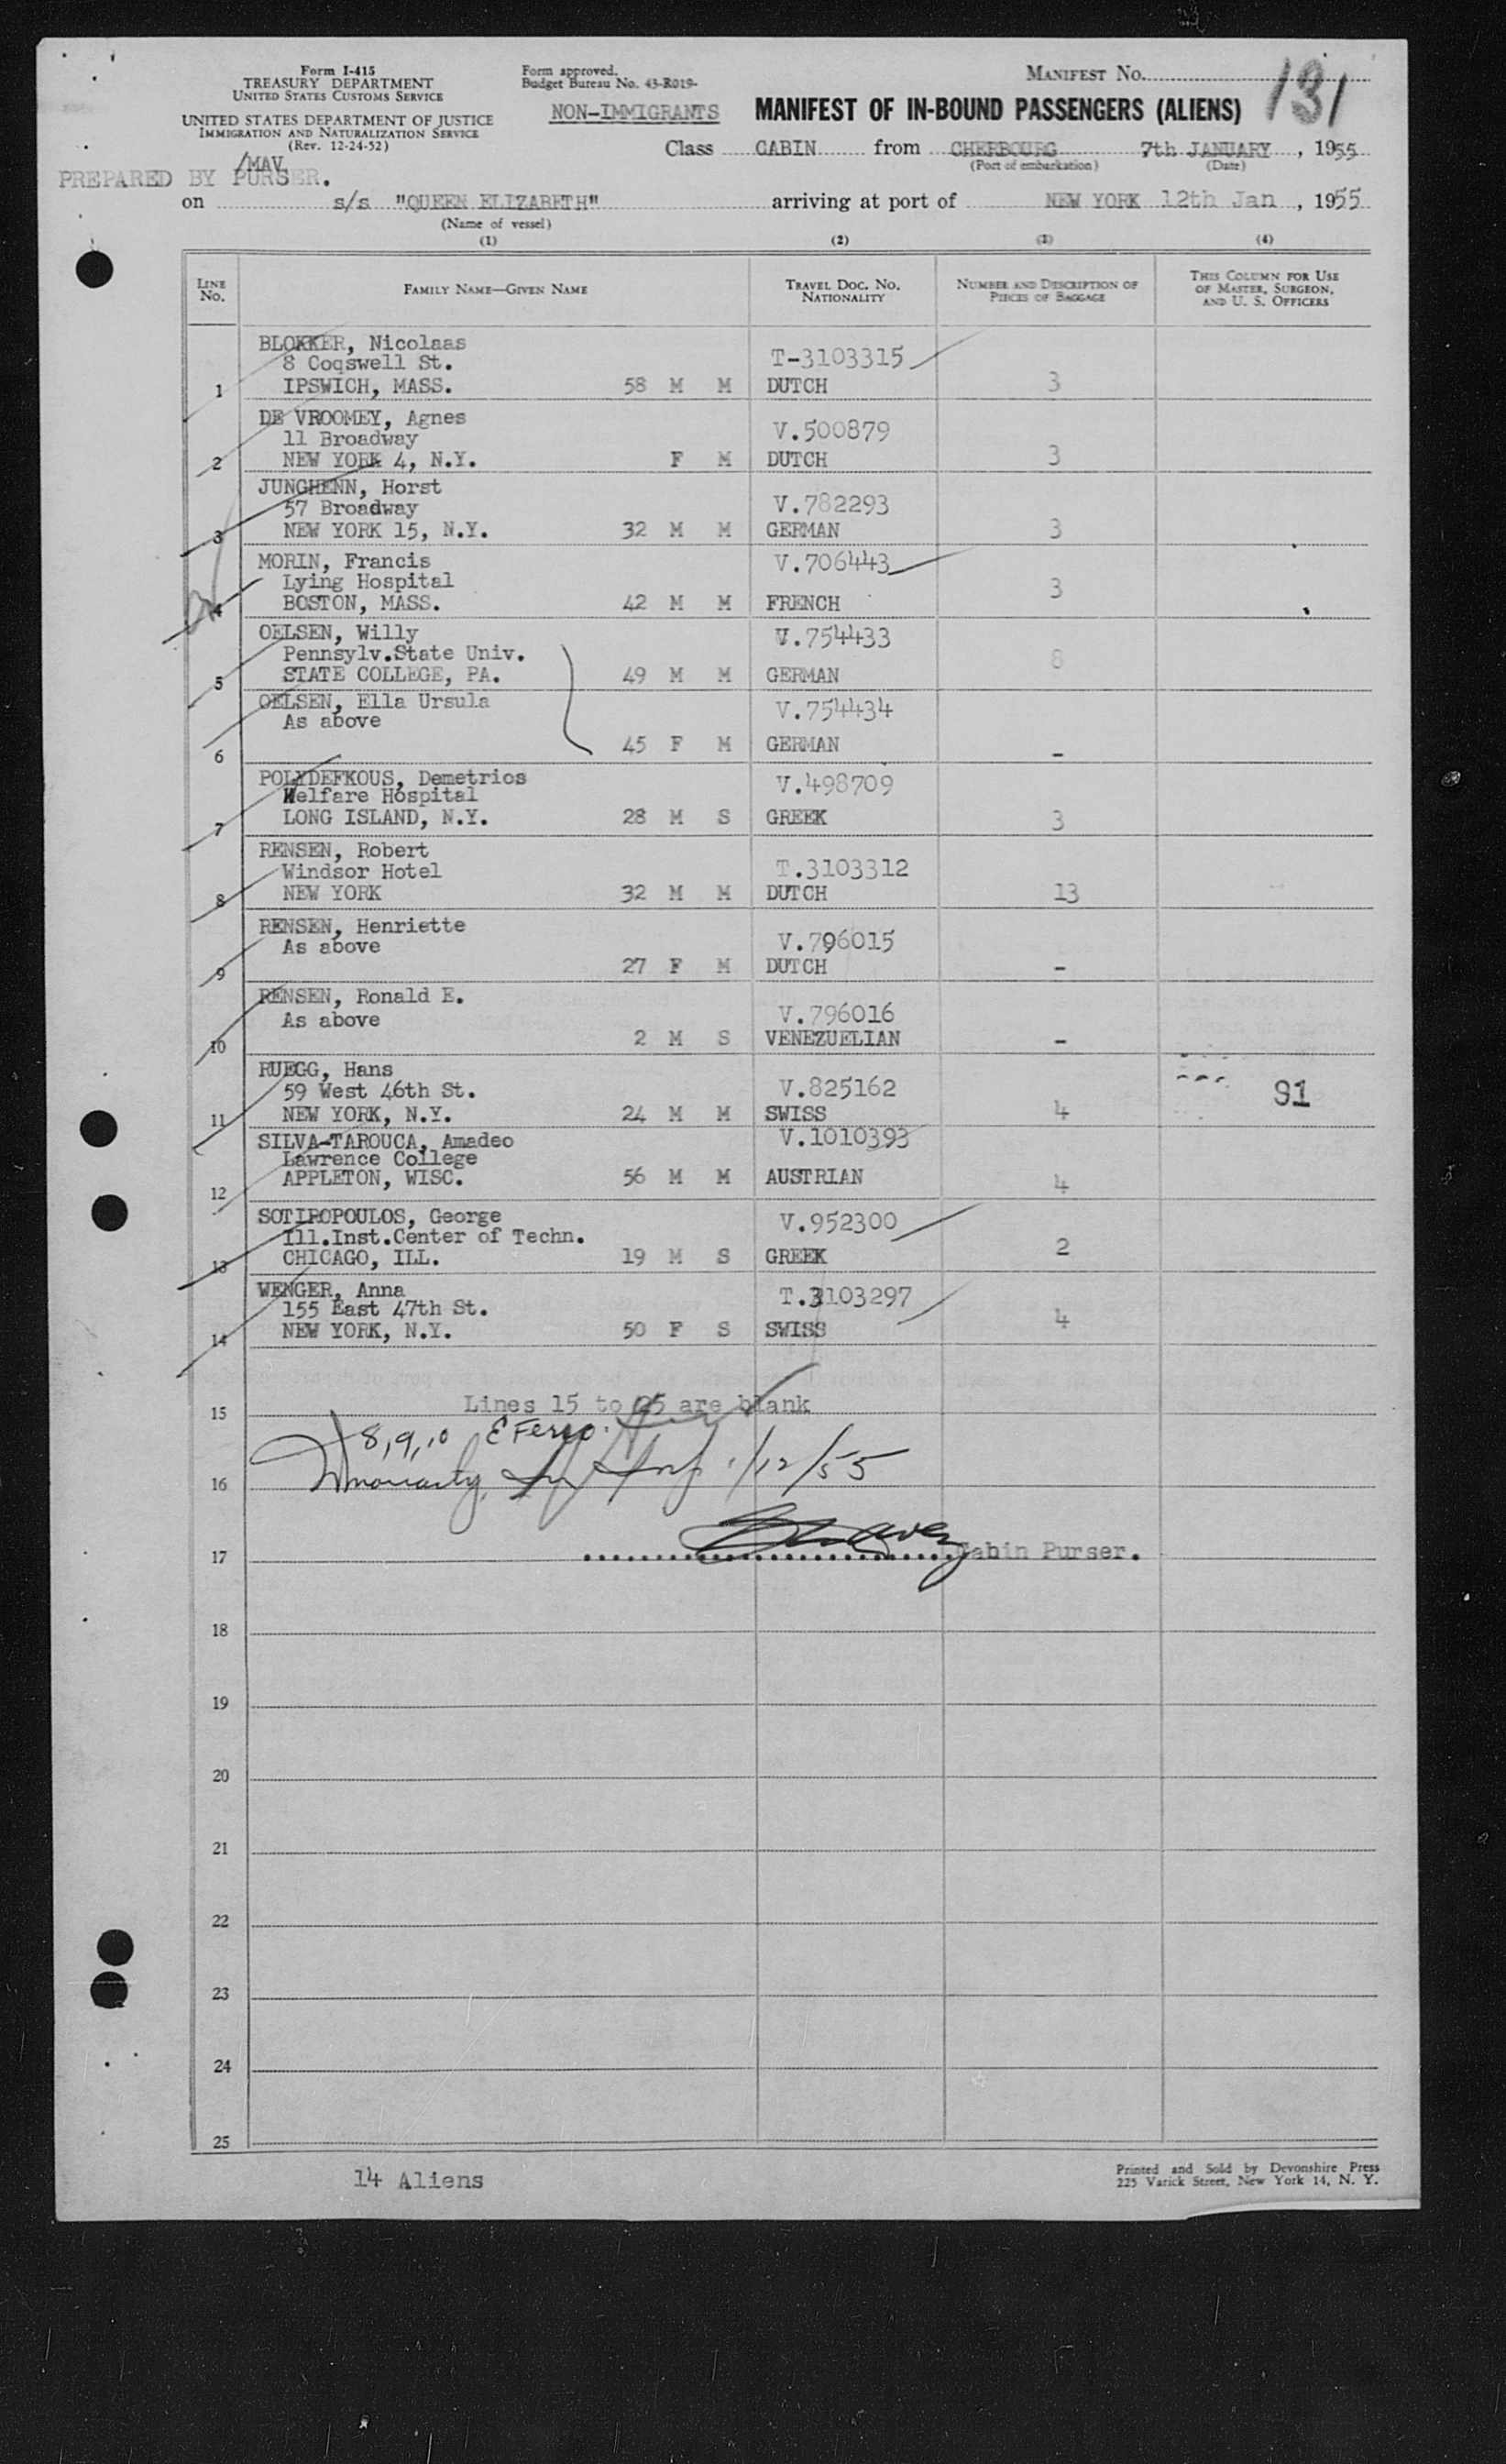 Form I-415
TREASURY DEPARTMENT
UNITED STATES CUSTOMS SERVICE
UNITED STATES DEPARTMENT OF JUSTICE
IMMIGRATION AND NATURALIZATION SERVICE
(Rev. 12-24-52)
Form approved.
Budget Bureau No. 43-R019-
NON-IMMIGRANTS
MANIFEST No.
131
MANIFEST OF IN-BOUND PASSENGERS (ALIENS)
Class CABIN from CHERBOURG 7th JANUARY, 1955
(Port of embarkation) (Date)
/MAV
PREPARED BY PURSER.
on s/s "QUEEN ELIZABETH" arriving at port of NEW YORK 12th Jan, 1955
(Name of vessel)
(1) (2) (3) (4)
LINE No. FAMILY NAME—GIVEN NAME TRAVEL DOC. No. NATIONALITY NUMBER AND DESCRIPTION OF PIECES OF BAGGAGE THIS COLUMN FOR USE OF MASTER, SURGEON, AND U. S. OFFICERS
BLOKKER, Nicolaas
8 Coqswell St. T-3103315
1 IPSWICH, MASS. 58 M M DUTCH 3
DE VROOMEY, Agnes
11 Broadway V.500879
2 NEW YORK 4, N.Y. F M DUTCH 3
JUNGHENN, Horst
57 Broadway V.782293
3 NEW YORK 15, N.Y. 32 M M GERMAN 3
MORIN, Francis V.706443
Lying Hospital
4 BOSTON, MASS. 42 M M FRENCH 3
OELSEN, Willy V.754433
Pennsylv.State Univ.
5 STATE COLLEGE, PA. 49 M M GERMAN 8
OELSEN, Ella Ursula V.754434
As above
6 45 F M GERMAN -
POLYDEFKOUS, Demetrios V.498709
Welfare Hospital
7 LONG ISLAND, N.Y. 28 M S GREEK 3
RENSEN, Robert
Windsor Hotel T.3103312
8 NEW YORK 32 M M DUTCH 13
RENSEN, Henriette
As above V.796015
9 27 F M DUTCH -
RENSEN, Ronald E.
As above V.796016
10 2 M S VENEZUELIAN -
RUEGG, Hans
59 West 46th St. V.825162 91
11 NEW YORK, N.Y. 24 M M SWISS 4
SILVA-TAROUCA, Amadeo V.1010393
Lawrence College
12 APPLETON, WISC. 56 M M AUSTRIAN 4
SOTIROPOULOS, George V.952300
Ill.Inst.Center of Techn.
13 CHICAGO, ILL. 19 M S GREEK 2
WENGER, Anna T.3103297
155 East 47th St.
14 NEW YORK, N.Y. 50 F S SWISS 4
Lines 15 to 25 are blank
15
8,9,10
16 1/12/55
17 Cabin Purser.
18
19
20
21
22
23
24
25
14 Aliens
Printed and Sold by Devonshire Press
225 Varick Street, New York 14, N. Y.